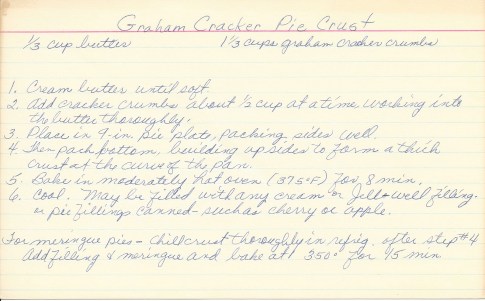 Graham Cracker Pie Crust
1/3 cup butter 1 1/3 cups graham cracker crumbs
1. Cream butter until soft
2. Add cracker crumbs about 1/2 cup at a time working into
the butter thoroughly.
3. Place in 9-in. pie plate, packing sides well.
4. Then pack bottom, building up sides to form a thick
crust at the curve of the pan.
5. Bake in moderately hot oven (375°F) for 8 min.
6. Cool. May be filled with any cream or Jell-well filling.
or pie fillings canned - such as cherry or apple.
For meringue pies - Chill crust thoroughly in refrig. after step #4
Add filling & meringue and bake at 350° for 15 min.